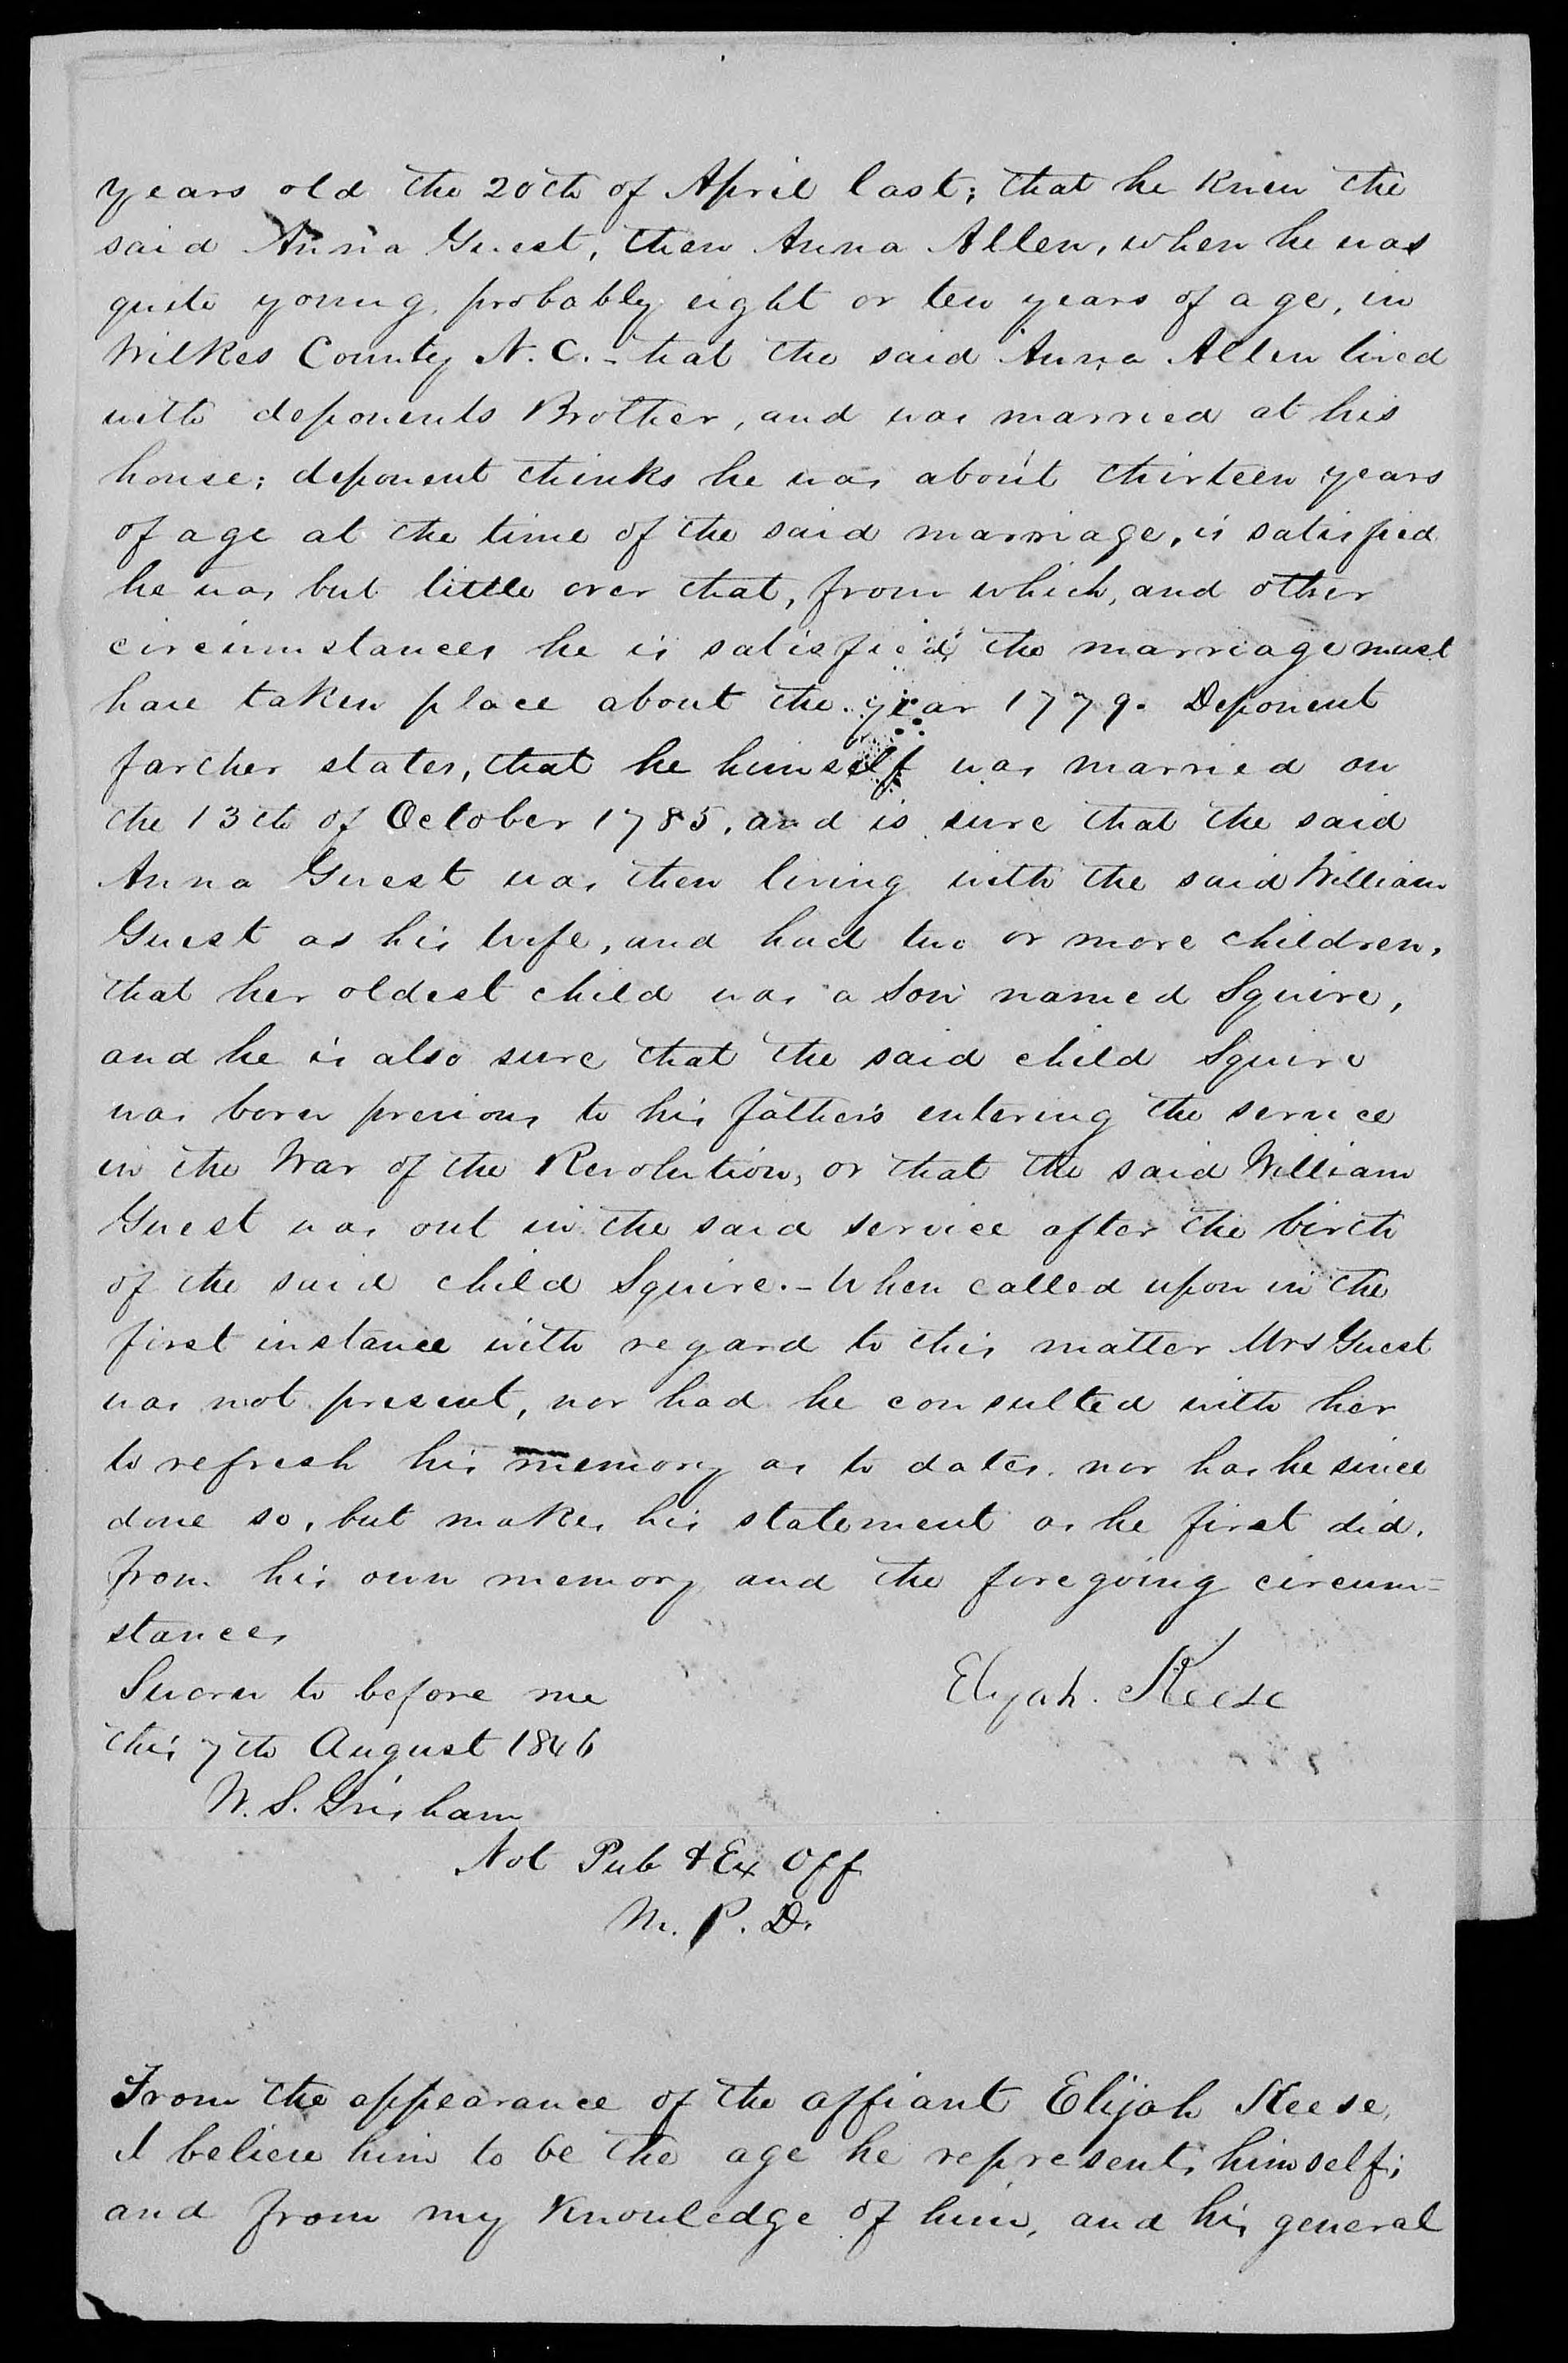 years old the 20th of April last; that he knew the
said Anna Guest, then Anna Allen, when he was
quite young, probably eight or ten years of age, in
Wilkes County N.C. - that the said Anna Allen lived
with deponents Brother, and was married at his
house; deponent thinks he was about thirteen years
of age at the time of the said marriage, is satisfied
he was but little over that, from which, and other
circumstances he is satisfied the marriage must
have taken place about the year 1779. Deponent
farther states, that he himself was married on
the 13th of October 1785, and is sure that the said
Anna Guest was then living with the said William
Guest as his wife, and had two or more children,
that her oldest child was a son named Squire,
and he is also sure that the said child Squire
was born previous to his father's entering the service
in the War of the Revolution, or that the said William
Guest was out in the said service after the birth
of the said child Squire. - When called upon in the
first instance with regard to this matter Mrs Guest
was not present, nor had he consulted with her
to refresh his memory as to dates, nor has he since
done so, but makes his statement as he first did,
from his own memory and the foregoing circum=
stances
Sworn to before me
Elijah. Keese
this 7th August 1846
W. S. Grisham
Not Pub & Ex Off
M. P. D.
From the appearance of the affiant Elijah Keese,
I believe him to be the age he represents himself;
and from my knowledge of him, and his general